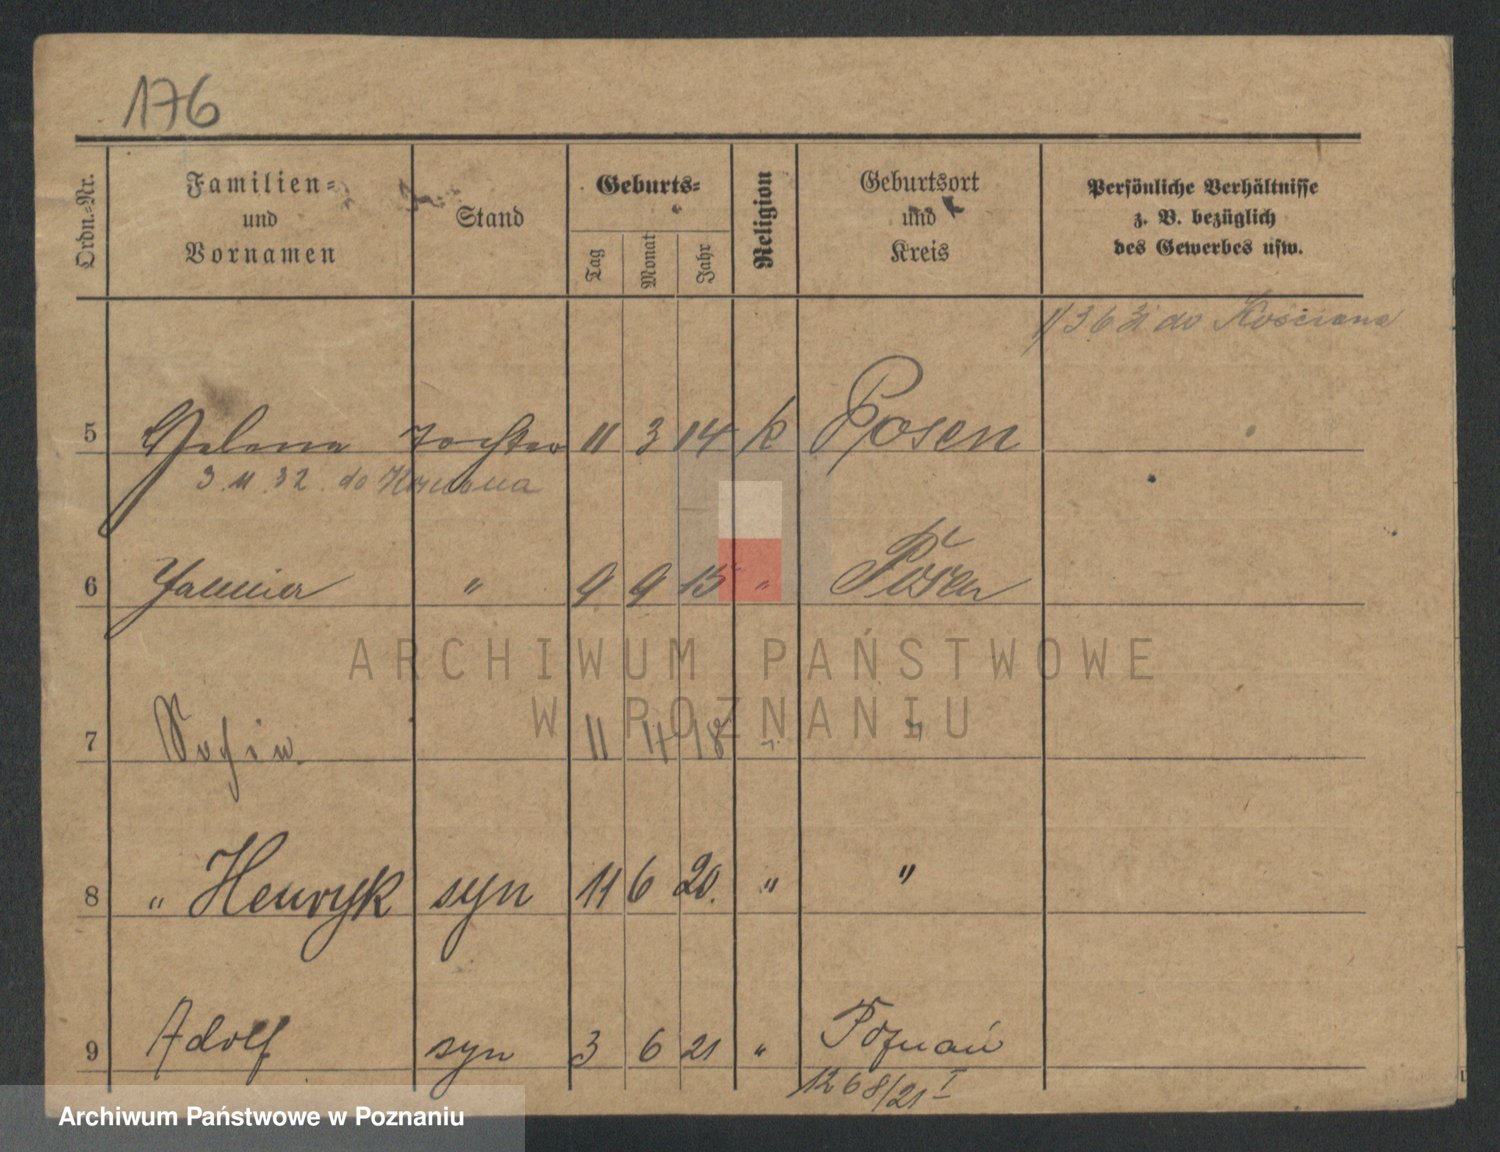 176
Ordn.-Nr.
Familien-
und
Vornamen
Stand
Geburts-
Tag
Monat
Jahr
Religion
Geburtsort
und
Kreis
Persönliche Verhältnisse
z. B. bezüglich
des Gewerbes usw.
1/3 6 31 do Kościana
5 Helena Tochter 11 3 14 k Posen
3 11 32 do
6 " 9 9 15 " Posen
ARCHIWUM PAŃSTWOWE
W POZNANIU
7 11 4 18 " "
8 " Henryk syn 11 6 20. " "
9 Adolf syn 3 6 21 " Poznań
1268/21 I
Archiwum Państwowe w Poznaniu